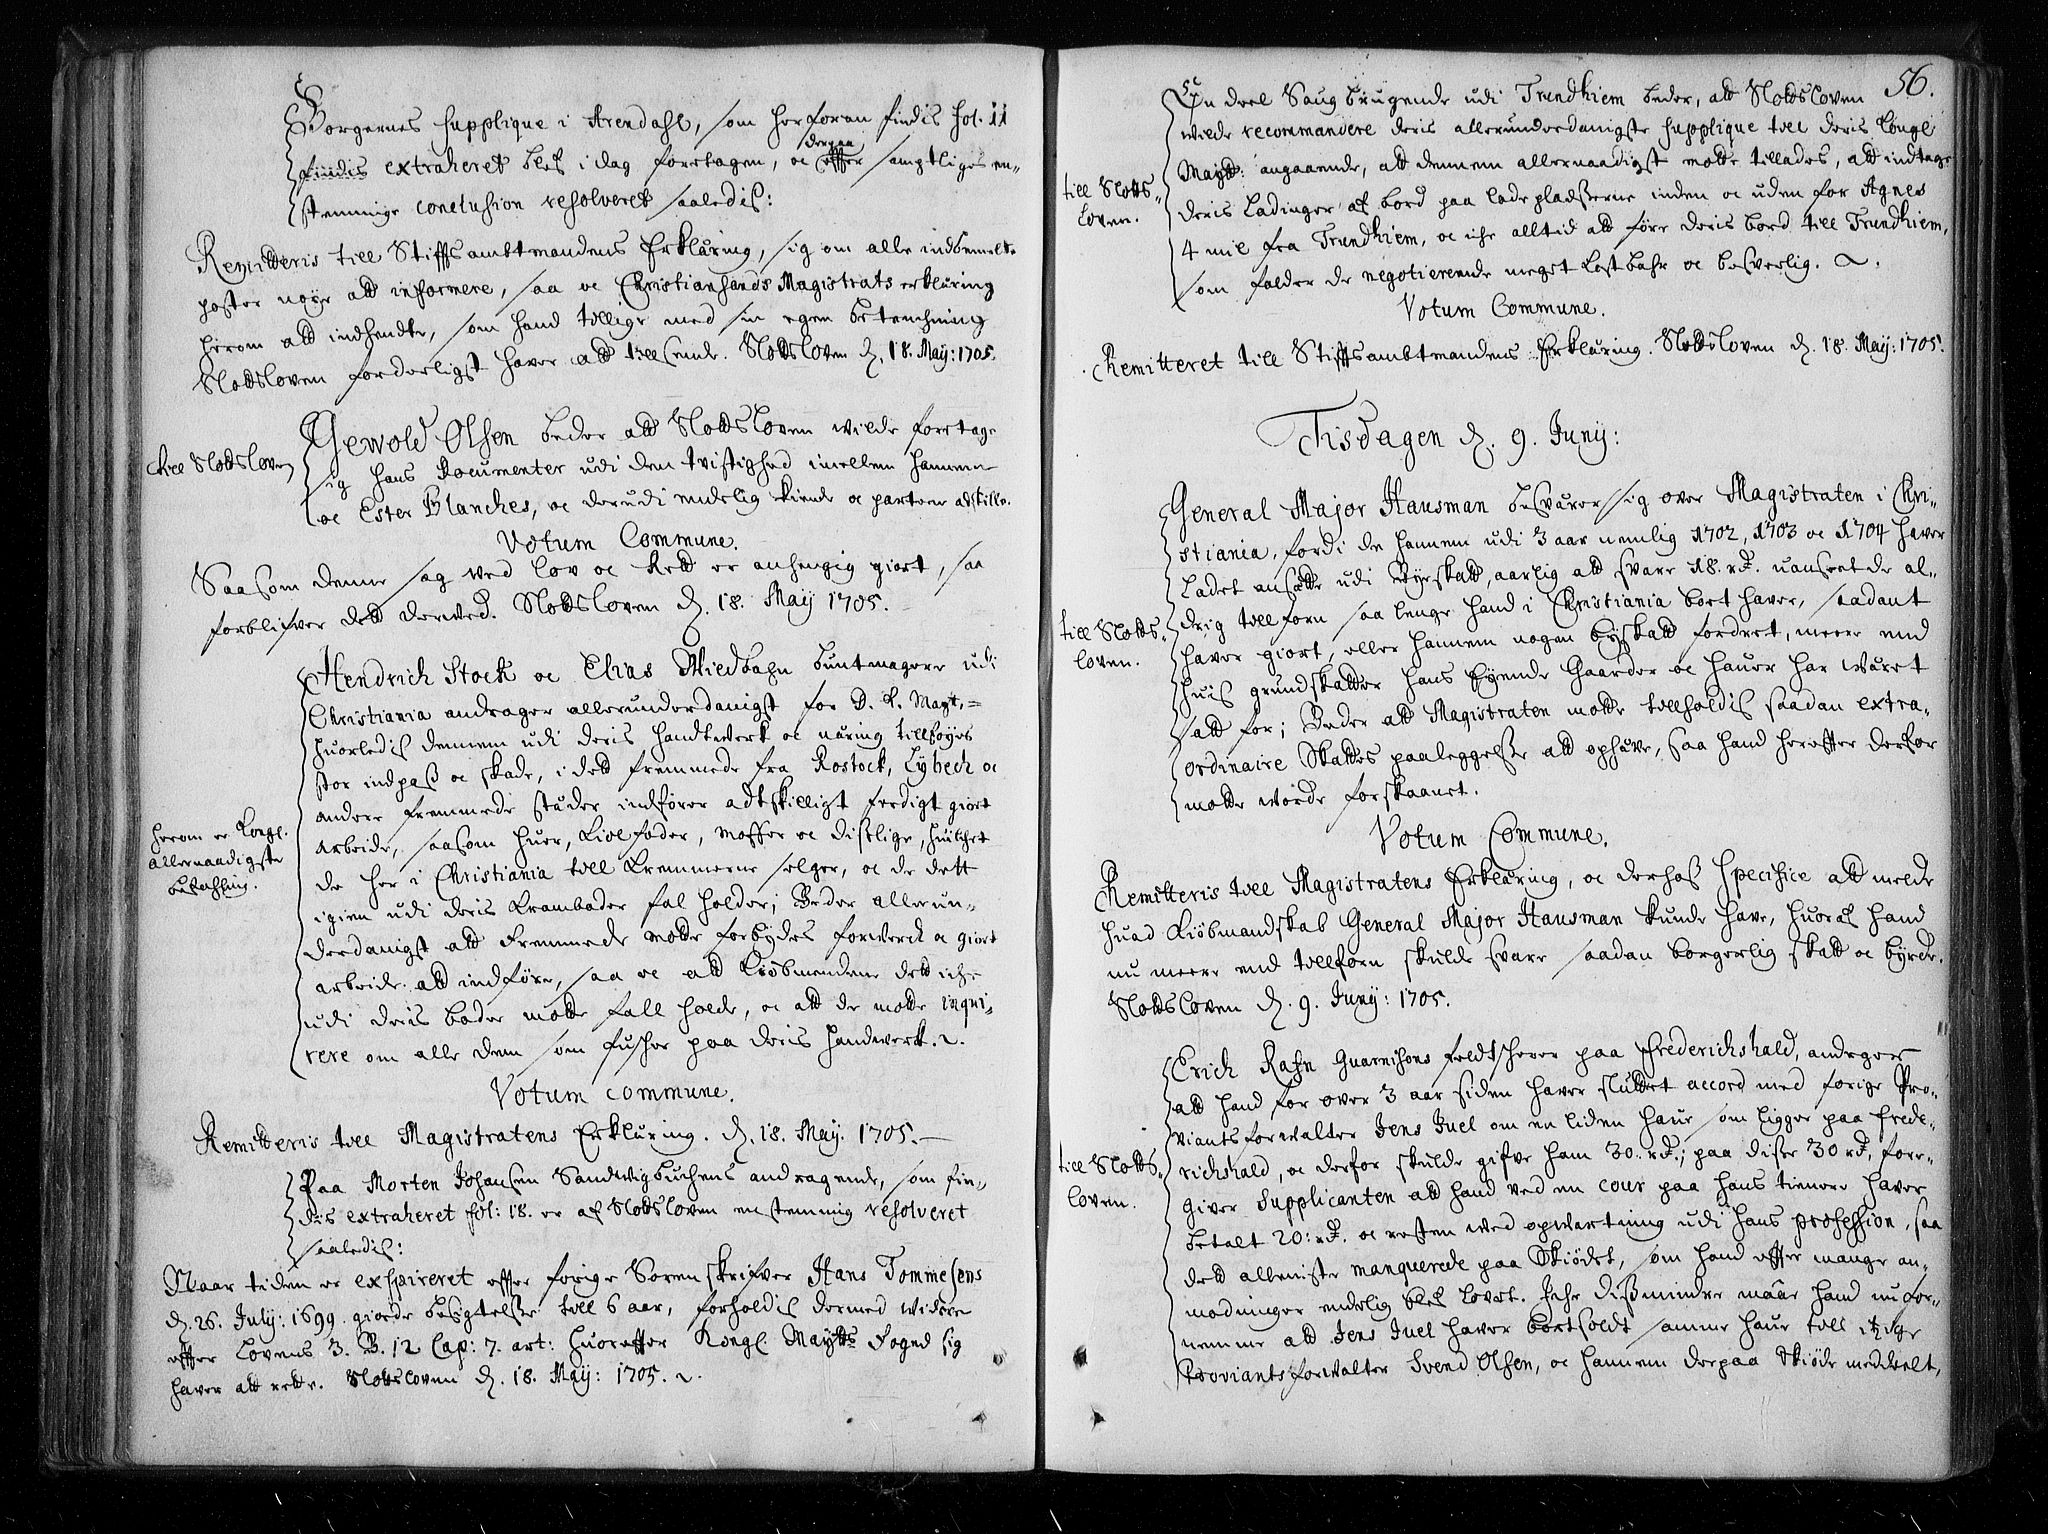 Borgernes supplique i Arendahl, som herforan findis fol. 11
findis extraheret blef i dag foretagen, oc efter derpaa samptliges een-
stemmige conclusion resolveret saaledis:
Remitteris till Stiffts ambtmandens Erklæring, sig om alle indbemelte
poster nøye att informere, saa oc Christiansands Magistrats erklæring
herom att indhendte, som hand tillige med sin egen betenchning
Slottsloven forderligst hafver att tilsende. Slottsloven d. 18. May: 1705.
till Slottsloven
Gewold Olsen beder att Slottsloven wilde foretage
sig hans Documenter udi den tvistighed imellem hannem
oc Ester Blanches, oc derudi endelig kiende oc parterne adskille.
Votum Commune.
Saasom denne sag ved lov oc Rett er anhengig giort, saa
forblifver dett derved. Slottsloven d. 18. May 1705.
herom er Kongl.
allernaadigste
befahling.
Hendrich Stock oc Elias Wiedbahn buntmagere udi
Christiania andrager allerunderdanigst for D. K. Mayt,
huorledis dennem udi deris handtverk oc næring tillføyes
stor indpas oc skade, i dett fremmede fra Rostock, Lybech oc
andere fremmede stæder indfører adtskilligt ferdigt giort
arbeide, saasom huer, Livfoder, moffer oc deslige, huilchet
de her i Christiania till Kremmerne selger, oc de dett
igien udi deris Kramboder fal holder; Beder allerun-
derdanigst att Fremmede motte forbydes forverck oc giort
arbeide att indføre, saa oc att Kiøbmendene dett iche
udi deris boder motte fall holde, oc att de motte inqui-
rere om alle dem som fusker paa deris Handwerk. &.
Votum commune.
Remitteris till Magistratens Erklæring. d. 18. May. 1705.
Paa Morten Johansen Sandwigbuchens andragende, som fin-
dis extraheret fol: 18. er af Slottsloven eenstemmig resolveret
saaledis:
Naar tiden er exspireret efter forige Sorenskrifver Hans Tommesens
d. 26. July: 1699. giorde besigtelse till 6 aar, forholdis dermed widere
efter Lovens 3. B. 12 Cap: 7. art: huorefter Kongl Maytts Foged sig
haver att rette. Slottsloven d. 18. May: 1705. &.
56.
till Slotts-
loven.
En deel Saug brugende udi Trundhiem beder, att Slottsloven
wilde recommandere deris allerunderdanigste supplique till deris Kongl
Maytt: angaaende, att dennem allernaadigst motte tillades, att indtage
deris Ladinger af bord paa ladepladserne inden oc uden for Agnes
4 mil fra Trundhiem, oc iche alltid att føre deris bord till Trundhiem,
som falder de negotierende meget kostbahr oc besverlig. &.
Votum Commune.
Remitteret till Stiffts ambtmandens Erklæring. Slottsloven d. 18. May: 1705.
Tisdagen d. 9. Juny:
till Slotts-
loven.
General Major Hausman besværer sig over Magistraten i Chri-
stiania, fordi de hannem udi 3 aar nemlig 1702, 1703 oc 1704 haver
Ladet ansætte udi Byeskatt, aarlig att svare 18. rd. uanseet de al-
drig till forn saa lenge hand i Christiania boet haver, saadant
haver giort, eller hannem nogen byskatt fordret, meere end
huis grundskatter hans Eyende Gaarder oc hauer har wæret
satt for; Beder att Magistraten motte tillholdis saadan extra-
ordinaire Skattes paaleggelse att ophæve, saa hand herefter derfor
motte worde forskaanet.
Votum Commune.
Remitteris till Magistratens Erklæring, oc derhos specifice att melde
huad Kiøbmandskab General Major Hausman kunde have, huoraf hand
nu meere end tillforn skulde svare saadan borgerlig skatt oc byrde.
Slottsloven d. 9. Juny: 1705.
till Slotts-
loven.
Erich Rahn Guarnisons feldtscherer paa Frederichshald, andrager
att hand for over 3 aar siden haver sluttet accord med forige Pro-
viantsforwalter Jens Juel om en liden haue som ligger paa Frede-
richshald, oc derfor skulde gifve ham 30. rd.; paa disse 30 rd, fore-
giver Supplicanten att hand ved en cour paa hans tienere haver
betalt 20: rd. oc resten wed opwartning udi hans profession, saa
dett alleniste manquerede paa Skiødet, som hand efter mange an-
modninger endelig blef lovet. Iche dessmindre maae hand nu for-
nemme att Jens Juel haver bortsoldt samme haue till itzige
Proviantsforwalter Svend Olsen, oc hannem derpaa Skiøde meddeelt,